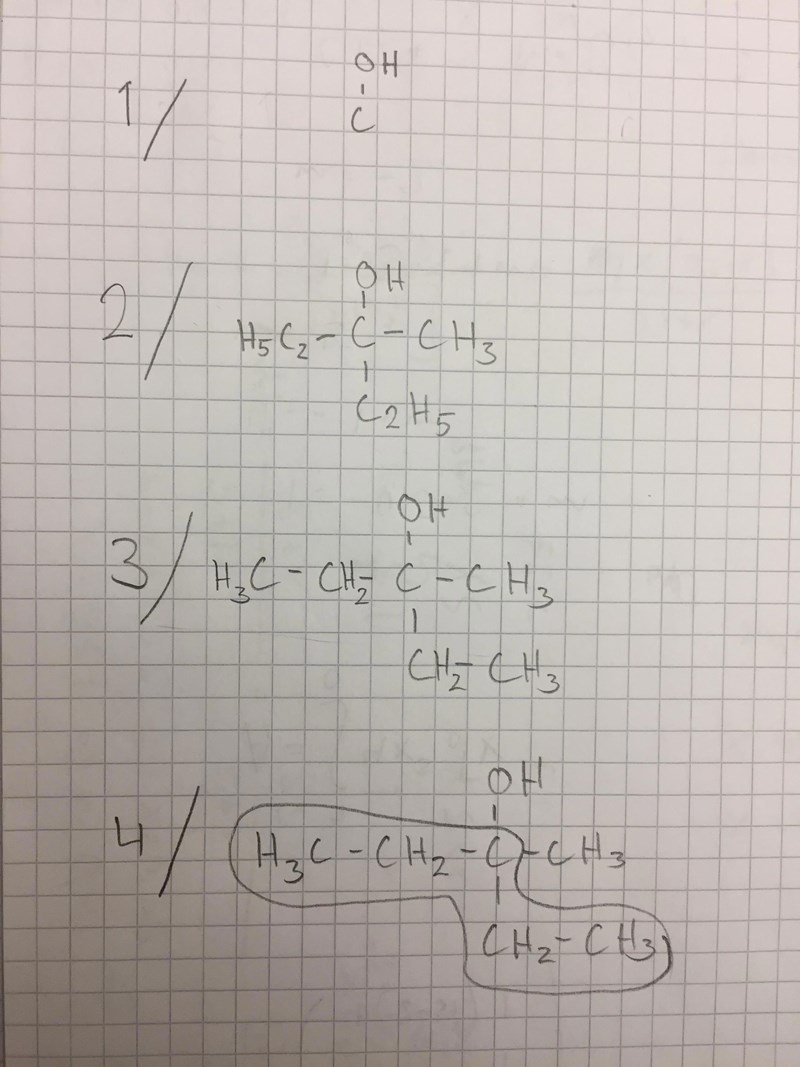 OH
1/
C
OH
2/ H5C2-C-CH3
C2H5
OH
3/ H3C-CH2-C-CH3
CH2-CH3
OH
4/ H3C-CH2-C-CH3
CH2-CH3